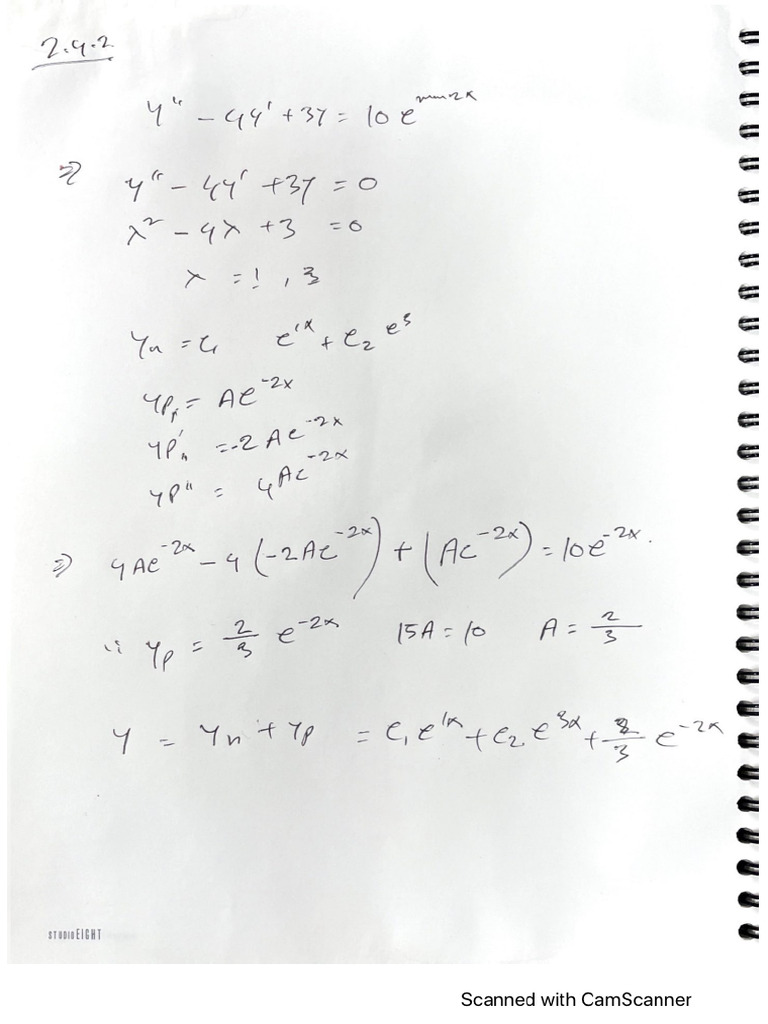 2.4.2
y'' - 4y' + 3y = 10 e^-2x
⇒ y'' - 4y' + 3y = 0
λ² - 4λ + 3 = 0
λ = 1, 3
y_n = c₁ e^1x + c₂ e^3
y_p = Ae^-2x
y_p' = -2Ae^-2x
y_p'' = 4Ae^-2x
⇒ 4Ae^-2x - 4(-2Ae^-2x) + (Ae^-2x) = 10e^-2x.
∴ y_p = 2/3 e^-2x 15A = 10 A = 2/3
y = y_n + y_p = c₁e^1x + c₂e^3x + 2/3 e^-2x
STUDIO EIGHT
Scanned with CamScanner